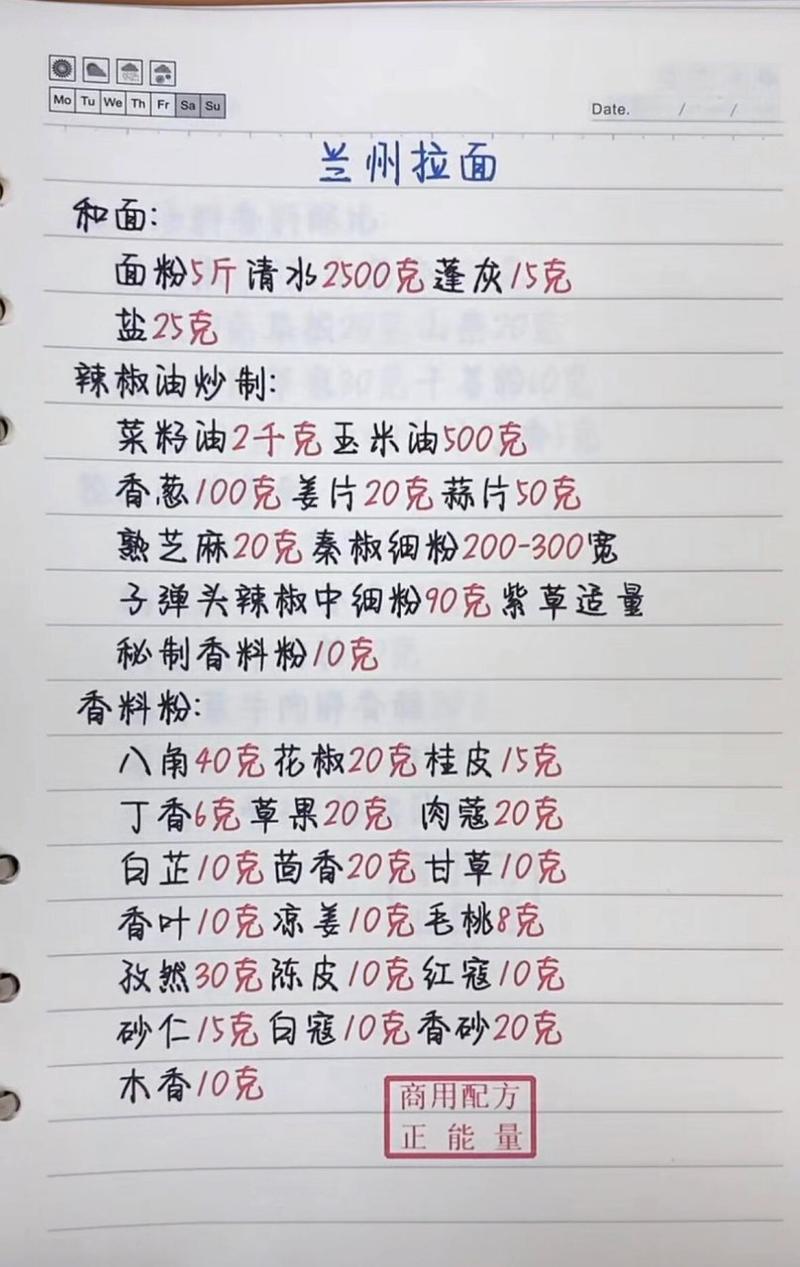 Mo Tu We Th Fr Sa Su
Date. / /
兰州拉面
和面:
面粉5斤清水2500克蓬灰15克
盐25克
辣椒油炒制:
菜籽油2千克玉米油500克
香葱100克姜片20克蒜片50克
熟芝麻20克秦椒细粉200-300宽
子弹头辣椒中细粉90克紫草适量
秘制香料粉10克
香料粉:
八角40克花椒20克桂皮15克
丁香6克草果20克 肉蔻20克
白芷10克茴香20克甘草10克
香叶10克凉姜10克毛桃8克
孜然30克陈皮10克红寇10克
砂仁15克白寇10克香砂20克
木香10克
商用配方
正能量